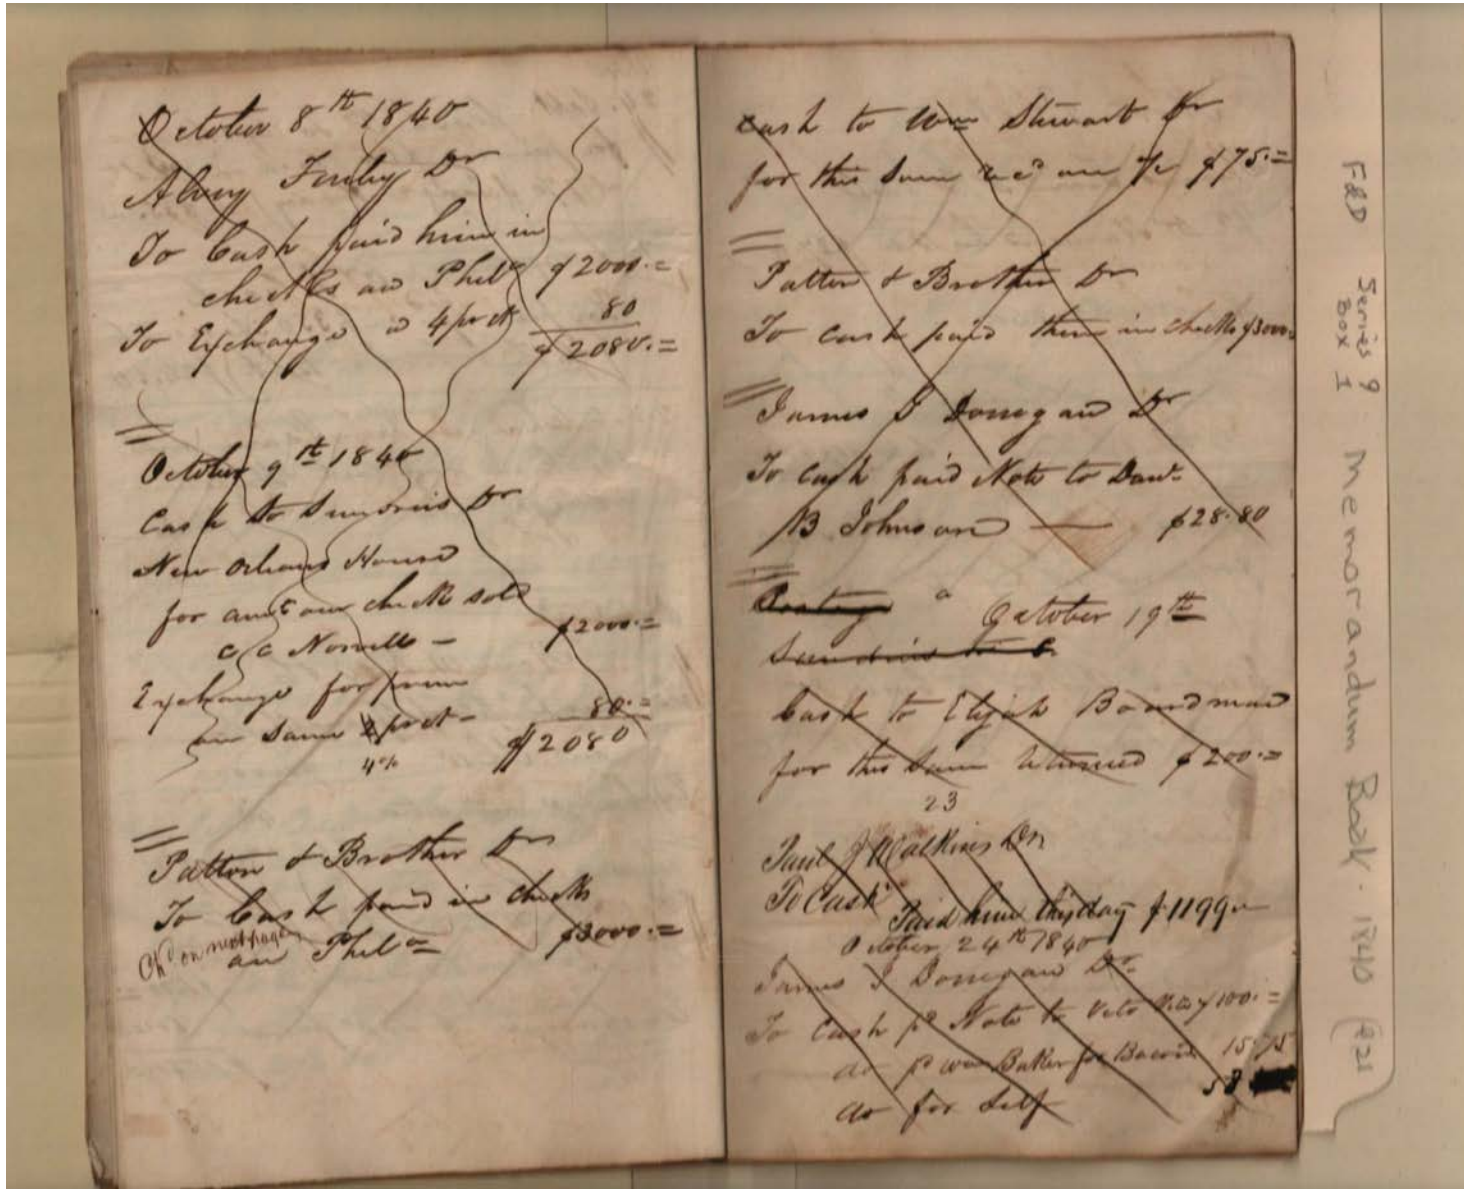 October 8th 1840
Alvey Finley Dr
To Cash paid him in
checks on Phila $2000.=
To Exchange @ 4 pr ct 80
$2080.=
October 9th 1840
Cash To Sundries Dr
New Orleans House
for amt our check sold
C C Norvell - $2000.=
Exchange for prem
on same pr ct - 80.=
4% $2080
Patton & Brother Dr
To Cash paid in checks
on Phila $3000.=
Chd on next page
Cash to Wm Stewart Dr
for this sum recd on a/c $75.=
Patton & Brother Dr
To cash paid them in checks $3000.
James J Donegan Dr
To cash paid Note to
B Johnson — $28.80
October 19th
Sundries to C
Cash to Elijah Boardman
for this sum returned $200.=
23
Paul J Watkins Dr
To Cash
Paid him this day $1199.-
October 24th 1840
James J Donegan Dr.
To Cash pd Note to $100.=
do pd Wm Baker for Bacon 15.75
do for Self
F&D Series 9 Memorandum Book. 1840
Box 1